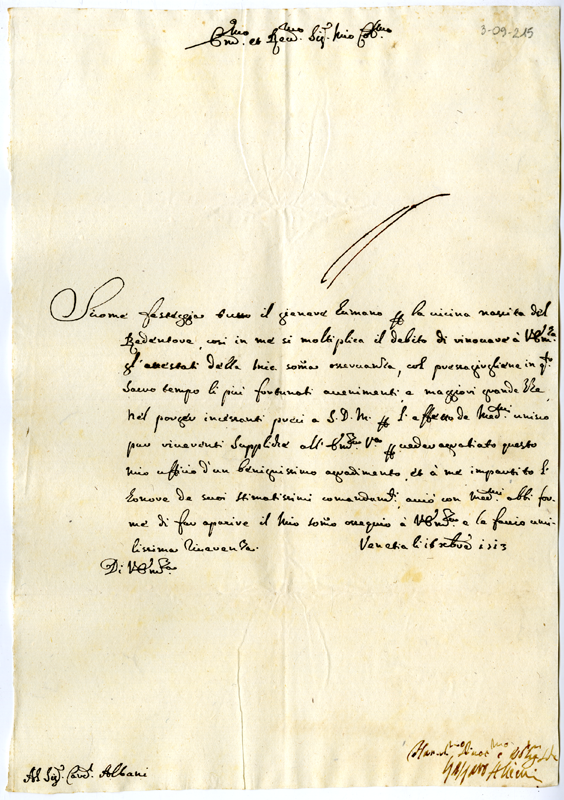 3-09-215
Em.mo et Rev.mo Sig.r Mio Col.mo
Siccome festeggia tutto il genere humano la vicina nascita del
Redentore, così in me si moltiplica il debito di rinovare à V. Em.za
gl'attestati della mia som̃a osservanza, col
Sacro tempo li più fortunati avvenimenti, e maggiori grandezze,
Nel porger incessanti preci a S. D. M. l'effetto de med.mi unisco
pur riverenti suppliche all' Em.za V.ra veder aggradito questo
mio ufficio d'un benignissimo agradimento, et à me impartito l'
honore de suoi stimatissimi comandam.ti, acciò con med.mi abbi for-
me di far aparire il mio som̃o ossequio à V. Em.za e le faccio umi-
lissima riverenza.
Venetia li 16 xbre 1713
Di V. Em.za
Al Sig.r Card. Albani